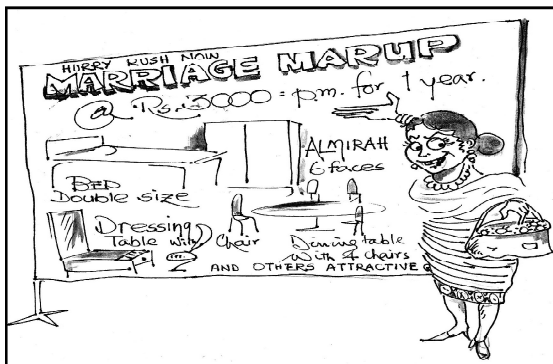 HURRY RUSH NOW
MARRIAGE MARUP
@ Rs. 3000 = p.m. for 1 year.
ALMIRAH
6 faces
BED
Double size
Dressing
Table with
Chair
Dinning table
With 4 chairs
AND OTHERS ATTRACTIVE